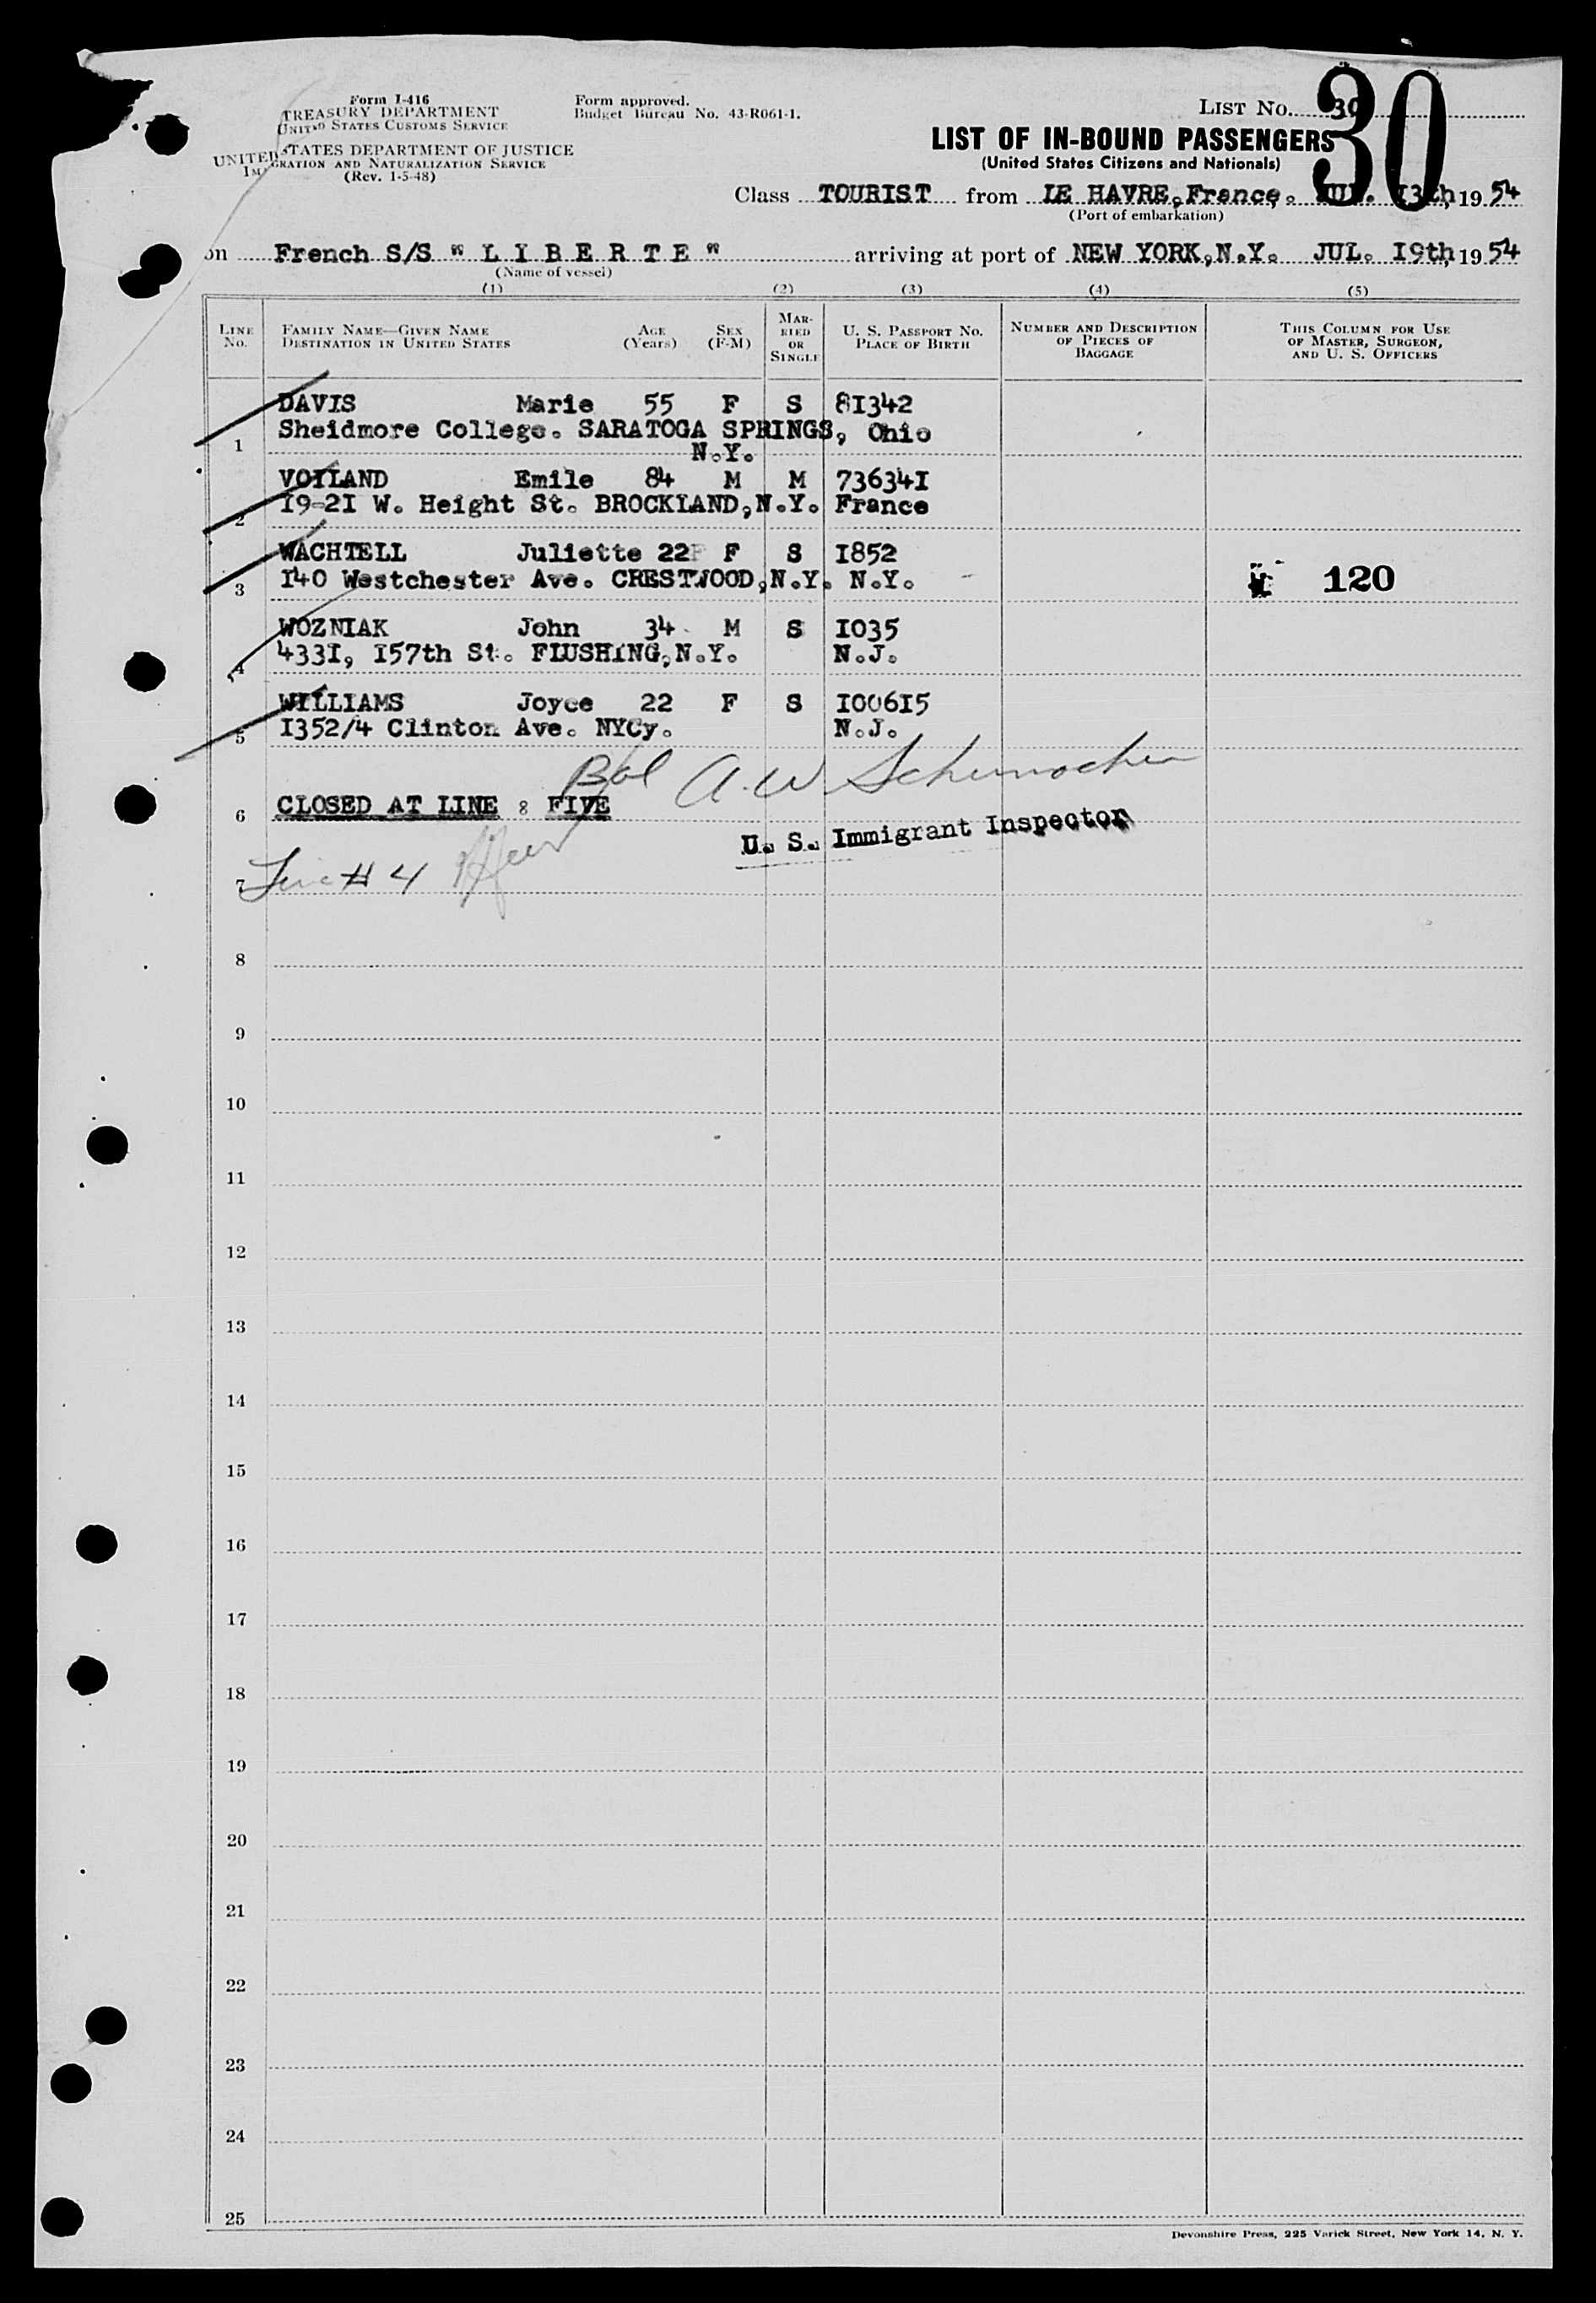 Form I-416
TREASURY DEPARTMENT
UNITED STATES CUSTOMS SERVICE
UNITED STATES DEPARTMENT OF JUSTICE
IMMIGRATION AND NATURALIZATION SERVICE
(Rev. 1-5-48)
Form approved.
Budget Bureau No. 43-R061-1.
LIST No. 30
30
LIST OF IN-BOUND PASSENGERS
(United States Citizens and Nationals)
Class TOURIST from LE HAVRE, France. JUL. 13th, 1954
(Port of embarkation)
on French S/S " L I B E R T E " arriving at port of NEW YORK, N.Y. JUL. 19th, 1954
(Name of vessel)
(1) (2) (3) (4) (5)
LINE No. FAMILY NAME—GIVEN NAME DESTINATION IN UNITED STATES AGE (Years) SEX (F-M) MARRIED OR SINGLE U. S. PASSPORT NO. PLACE OF BIRTH NUMBER AND DESCRIPTION OF PIECES OF BAGGAGE THIS COLUMN FOR USE OF MASTER, SURGEON, AND U. S. OFFICERS
DAVIS Marie 55 F S 81342
1 Sheidmore College. SARATOGA SPRINGS, Ohio
N.Y.
VOILAND Emile 84 M M 736341
2 19-21 W. Height St. BROCKLAND, N.Y. France
WACHTELL Juliette 22 F S 1852
3 140 Westchester Ave. CRESTWOOD, N.Y. N.Y. 120
WOZNIAK John 34 M S 1035
4 4331, 157th St. FLUSHING, N.Y. N.J.
WILLIAMS Joyce 22 F S 100615
5 1352/4 Clinton Ave. NYCy. N.J.
Bal A. W. Schumacher
6 CLOSED AT LINE : FIVE
U. S. Immigrant Inspector
7 Line # 4
8
9
10
11
12
13
14
15
16
17
18
19
20
21
22
23
24
25
Devonshire Press, 225 Varick Street, New York 14, N. Y.